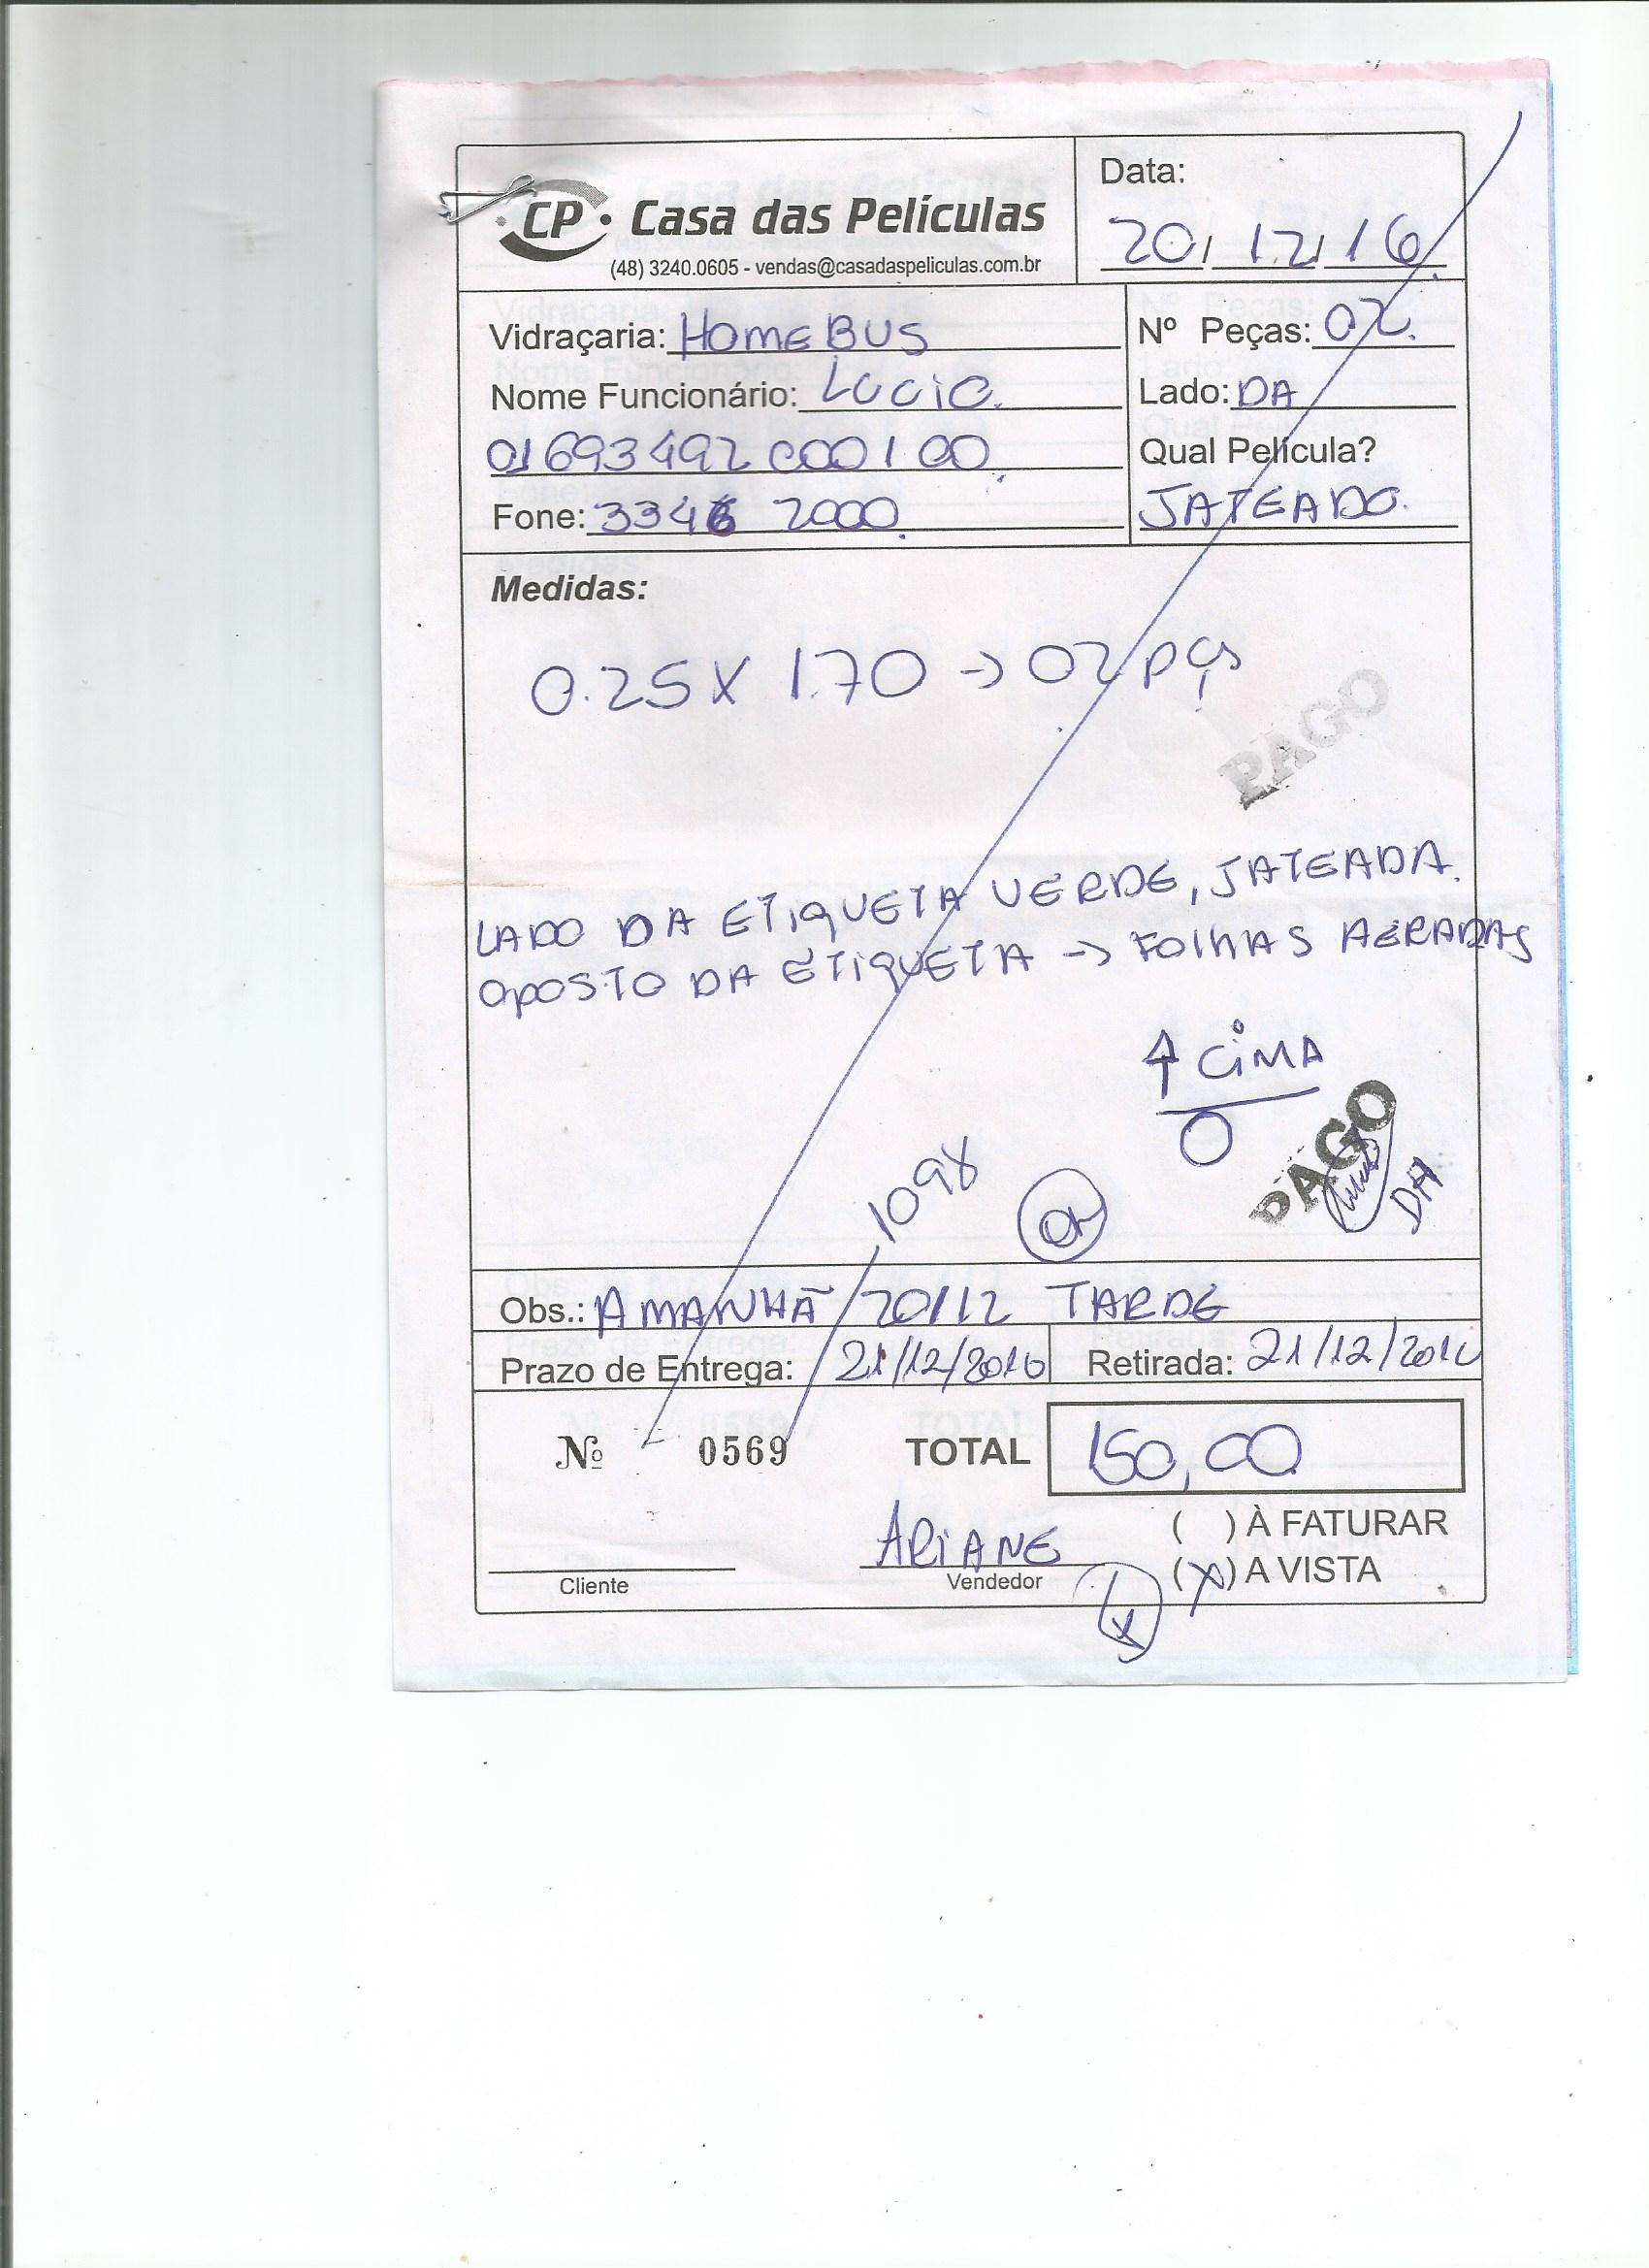 CP Casa das Películas
(48) 3240.0605 - vendas@casadaspeliculas.com.br
Data:
20/12/16
Vidraçaria: HOMEBUS
Nº Peças: 02
Nome Funcionário: LUCIO
Lado: DA
01693492 0001 00
Qual Película?
Fone: 3346 2000
JATEADO
Medidas:
0.25 X 1.70 → 02 pçs
PAGO
LADO DA ETIQUETA VERDE, JATEADA.
OPOSTO DA ETIQUETA → FOLHAS
↑ CIMA
PAGO
DA
1098
OK
Obs.: AMANHÃ 20/12 TARDE
Prazo de Entrega: 21/12/2016
Retirada: 21/12/2016
Nº 0569
TOTAL 150,00
ARIANE
( ) À FATURAR
Cliente
Vendedor
(X) A VISTA